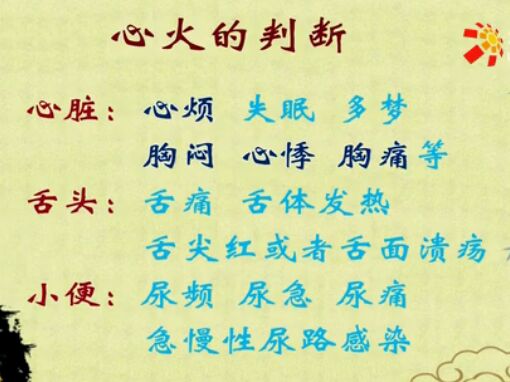 心火的判断
心脏：心烦 失眠 多梦
胸闷 心悸 胸痛等
舌头：舌痛 舌体发热
舌尖红或者舌面溃疡
小便：尿频 尿急 尿痛
急慢性尿路感染